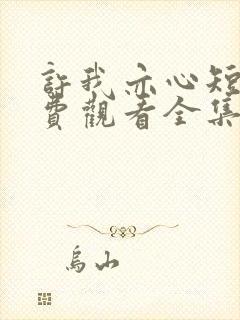 許我亦心短
費觀看全集
烏山